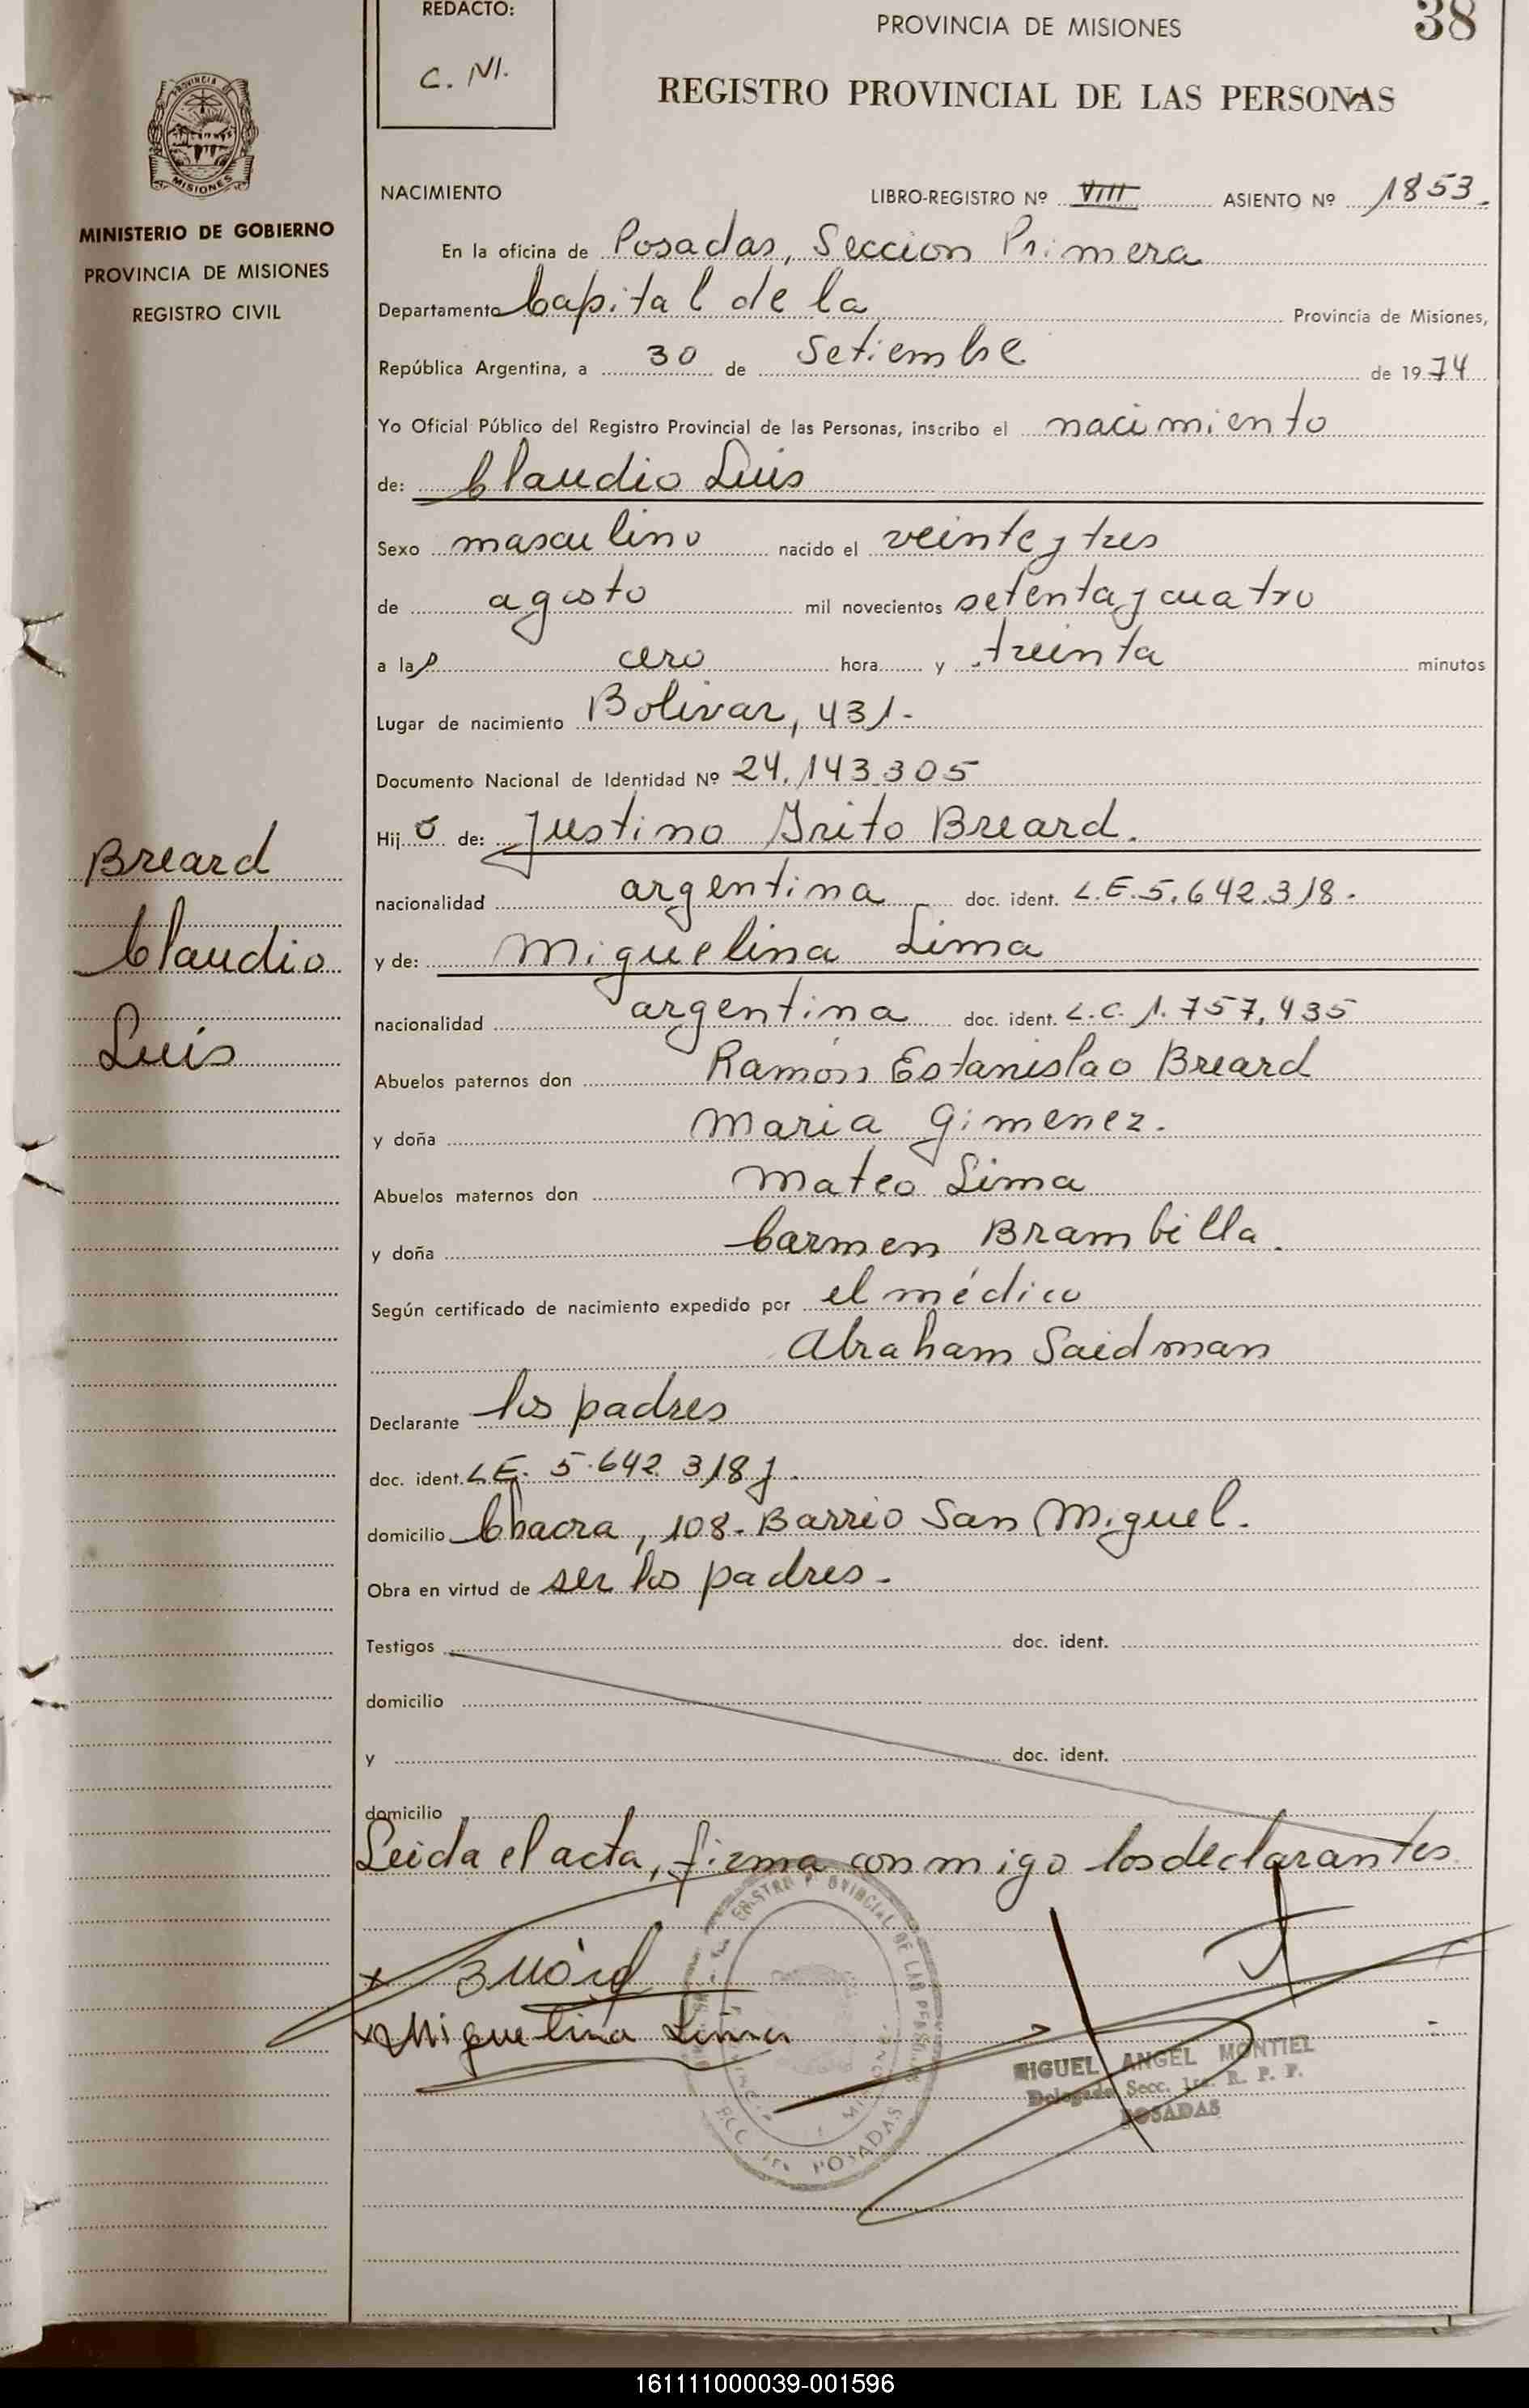 REDACTO:
C. N.
PROVINCIA DE MISIONES
38
REGISTRO PROVINCIAL DE LAS PERSONAS
PROVINCIA DE
MISIONES
MINISTERIO DE GOBIERNO
PROVINCIA DE MISIONES
REGISTRO CIVIL
NACIMIENTO LIBRO-REGISTRO Nº VIII ASIENTO Nº 1853.
En la oficina de Posadas, Seccion Primera
Departamento Capital de la Provincia de Misiones,
República Argentina, a 30 de Setiembre de 1974
Yo Oficial Público del Registro Provincial de las Personas, inscribo el nacimiento
de: Claudio Luis
Sexo masculino nacido el veinte y tres
de agosto mil novecientos setenta y cuatro
a las cero hora y treinta minutos
Lugar de nacimiento Bolivar, 431.-
Documento Nacional de Identidad Nº 24.143.305
Hijo de: Justino Brito Breard.
nacionalidad argentina doc. ident. L.E. 5.642.318.
y de: Miguelina Lima
nacionalidad argentina doc. ident. L.C. 1.757.435
Abuelos paternos don Ramón Estanislao Breard
y doña Maria Gimenez.
Abuelos maternos don Mateo Lima
y doña Carmen Brambilla.
Según certificado de nacimiento expedido por el médico
Abraham Saidman
Declarante los padres
doc. ident. L.E. 5.642.318 y.
domicilio Chacra, 108. Barrio San Miguel.
Obra en virtud de ser los padres.-
Testigos doc. ident.
domicilio
y doc. ident.
domicilio
Leida el acta, firma conmigo los declarantes
Breard
Claudio
Luis
Miguelina Lima
MIGUEL ANGEL MONTIEL
Delegado Secc. 1ra. R. P. P.
POSADAS
161111000039-001596